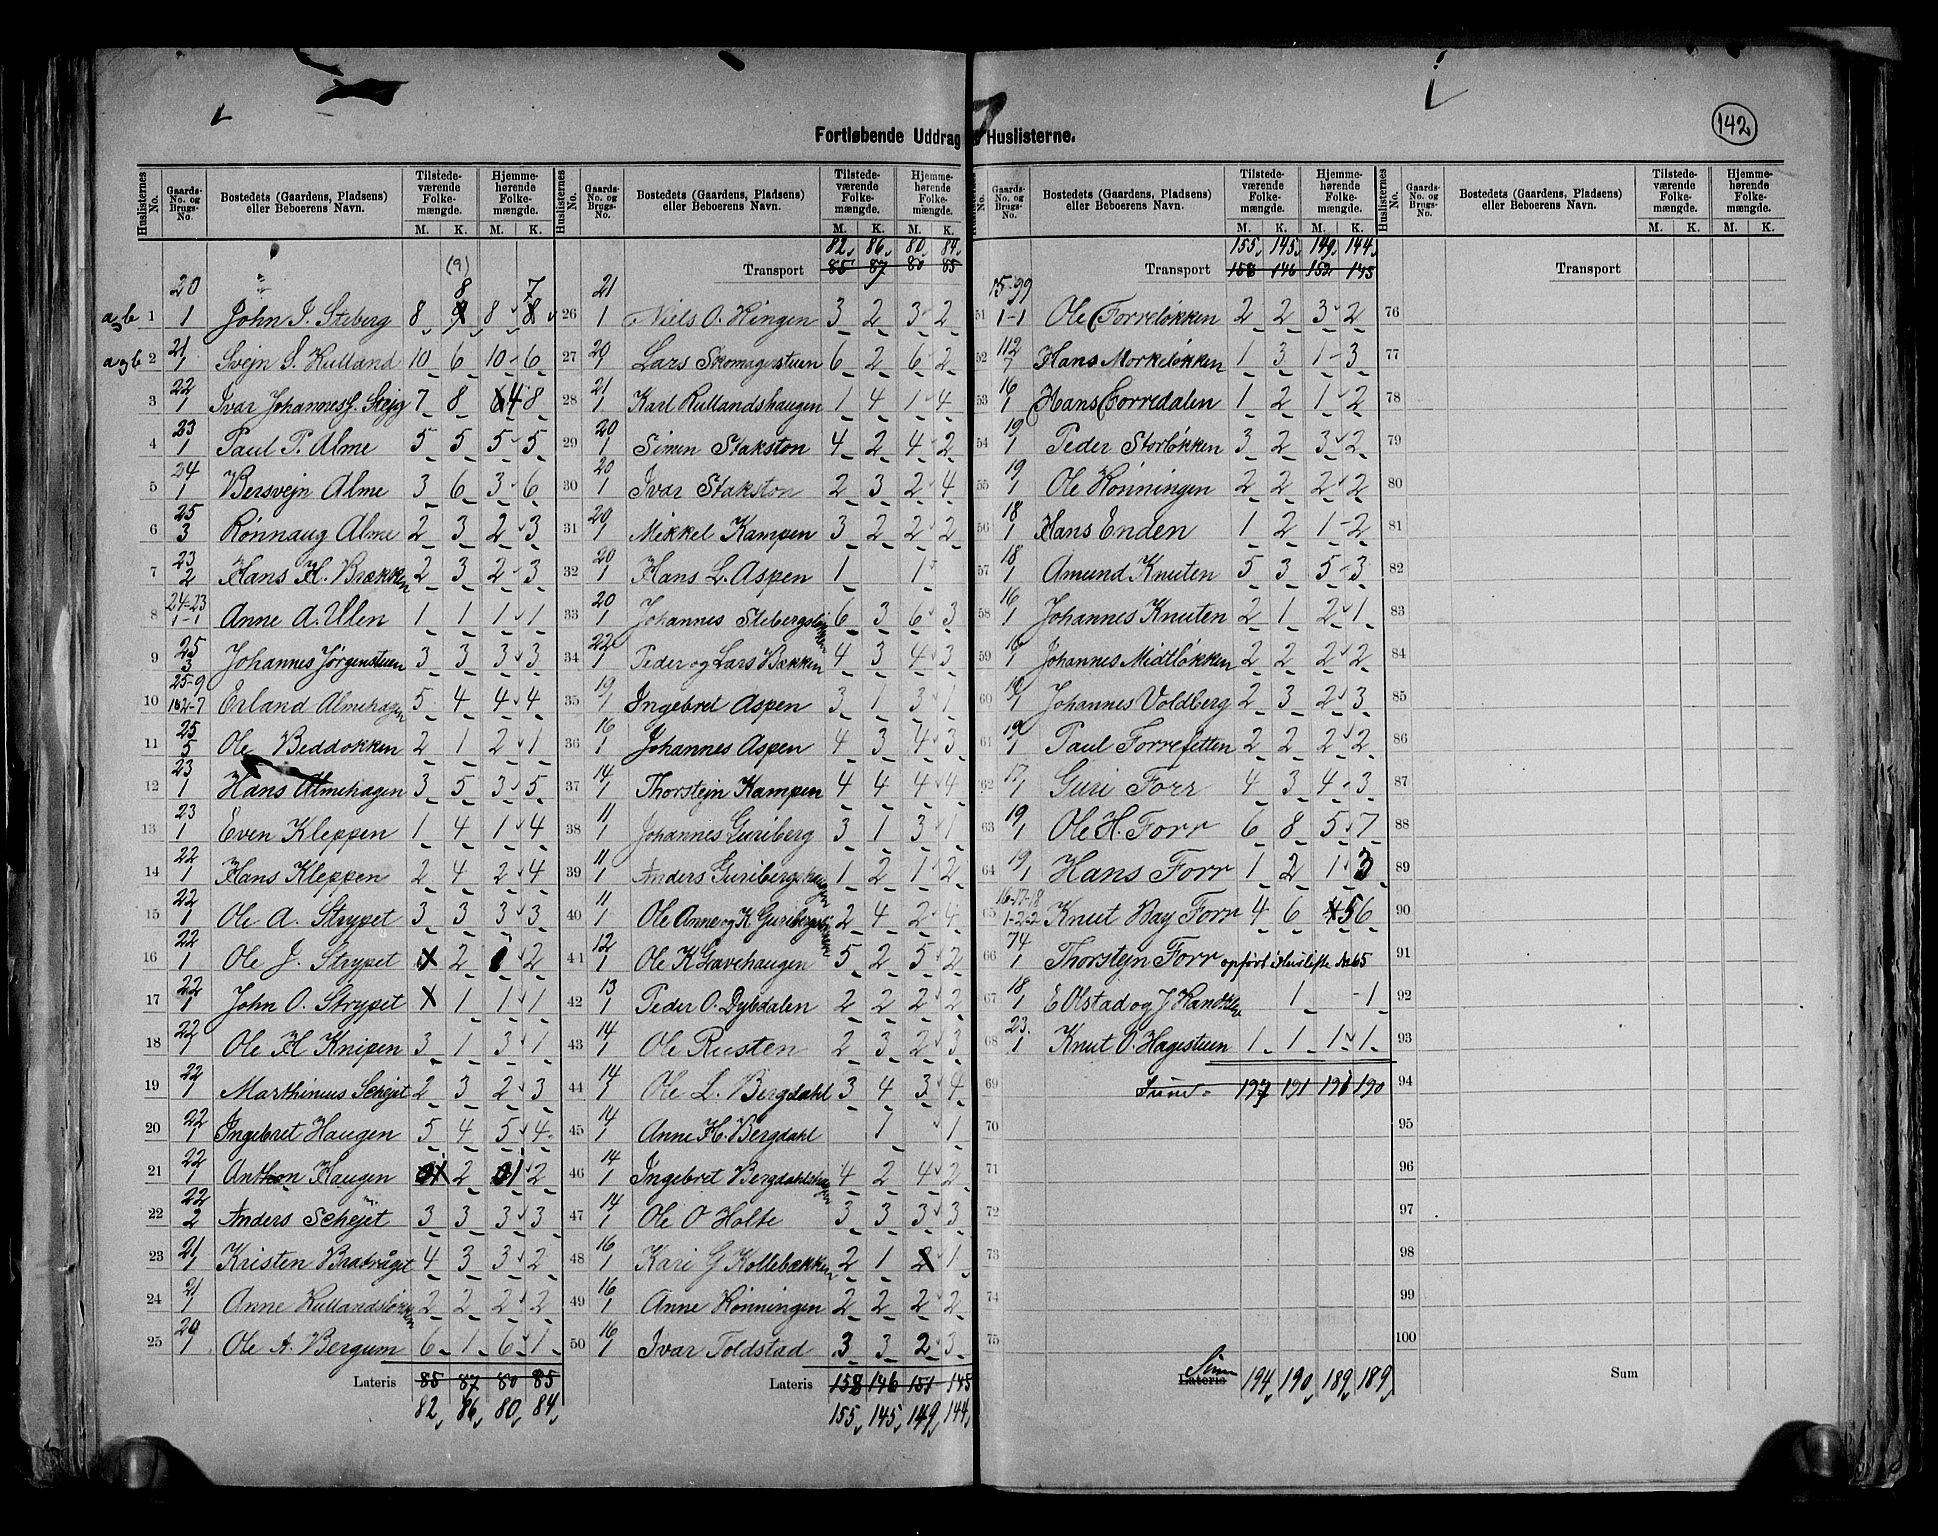 142
Fortløbende Uddrag Huslisterne.
Huslisternes No. Gaards- No. og Brugs- No. Bostedets (Gaardens, Pladsens) eller Beboerens Navn. Tilstede- værende Folke- mængde. M. K. Hjemme- hørende Folke- mængde. M. K.
(9)
20 8 7
a b 1 1 John J. Steberg 8 9 8 8
a b 2 21 1 Svejn S. Kulland 10 6 10 6
3 22 1 Ivar Johannes S. 7 8 4 8
4 23 1 Paul P. Alme 5 5 5 5
5 24 1 Bersvejn Alme 3 6 3 6
6 25 3 Rønnaug Alme 2 3 2 3
7 23 2 Hans H. Brækken 2 3 2 3
8 24-23 1-1 Anne A. Ulen 1 1 1 1
9 25 3 Johannes Jørgenstuen 3 3 3 3
10 25-9 Erland Almehagen 5 4 4 4
11 25 5 Ole Beddokken 2 1 2 1
12 23 1 Hans Almehagen 3 5 3 5
13 23 1 Even Kleppen 1 4 1 4
14 22 1 Hans Kleppen 2 4 2 4
15 22 1 Ole A. Strypet 3 3 3 3
16 22 1 Ole J. Strypet 2 2
17 22 1 John O. Strypet 1 1 1
18 22 1 Ole H Knipen 3 1 3 1
19 22 1 Marthinius Schejet 2 3 2 3
20 22 1 Ingebret Haugen 5 4 5 4
21 22 1 Anthon Haugen 2 2
22 22 2 Anders Schejet 3 3 3 3
23 21 1 Kristen 4 3 3 2
24 21 1 Anne 2 2 2 2
25 1 Ole A. Bergum 6 1 6 1
Lateris 85 87 80 85
82 86 80 84
Huslisternes No. Gaards- No. og Brugs- No. Bostedets (Gaardens, Pladsens) eller Beboerens Navn. Tilstede- værende Folke- mængde. M. K. Hjemme- hørende Folke- mængde. M. K.
82 86 80 84
Transport 85 87 80 85
26 21 1 Niels O. Hingen 3 2 3 2
27 20 1 Lars Skomagerstuen 6 2 6 2
28 21 1 Karl Rullandshaugen 1 4 1 4
29 20 1 Simen Stakston 4 2 4 2
30 20 1 Ivar Stakston 2 3 2 4
31 20 1 Mikkel Kampen 3 2 2 2
32 20 1 Hans L. Aspen 1 1
33 20 1 Johannes 6 3 6 3
34 22 1 Peder og Lars Bækken 4 3 4 3
35 19 1 Ingebret Aspen 3 1 3 1
36 16 1 Johannes Aspen 4 3 4 3
37 14 1 Thorstejn Kampen 4 4 4 4
38 11 1 Johannes Guriberg 3 1 3 1
39 11 1 Anders Guriberghaugen 1 2 1 2
40 11 1 Ole Anne og K. 2 4 2 4
41 12 1 Ole K Gravehaugen 5 2 5 2
42 13 1 Peder O. Dybdalen 2 2 2 2
43 14 1 Ole Rusten 2 3 2 3
44 14 1 Ole L. Bergdahl 3 4 3 4
45 14 1 Anne H. Bergdahl 1 1
46 14 1 Ingebret 4 2 4 2
47 14 1 Ole O Holte 3 3 3 3
48 16 1 Kari G Kollebækken 2 1 2 1
49 16 1 Anne Rønningen 2 2 2 2
50 16 1 Ivar Toldstad 3 3 2 3
Lateris 158 146 151 145
155 145 149 144
No. Gaards- No. og Brugs- No. Bostedets (Gaardens, Pladsens) eller Beboerens Navn. Tilstede- værende Folke- mængde. M. K. Hjemme- hørende Folke- mængde. M. K.
155 145 149 144
Transport 158 146 152 145
51 15-99 1-1 Ole Forreløkken 2 2 3 2
52 112 7 Hans Morkeløkken 1 3 1 3
53 16 1 Hans Forredalen 1 2 1 2
54 19 1 Peder Storløkken 3 2 3 2
55 19 1 Ole Rønningen 2 2 2 2
56 18 1 Hans Enden 1 2 1 2
57 18 1 Amund Knuten 5 3 5 3
58 16 1 Johannes Knuten 2 1 2 1
59 1 Johannes Midtløkken 2 2 2 2
60 1 Johannes Voldberg 2 3 2 3
61 19 1 Paul Forrefetten 2 2 2 2
62 17 1 Guri Forr 4 3 4 3
63 19 1 Ole H. Forr 6 8 5 7
64 19 1 Hans Forr 1 2 1 3
65 16-17-18 1-2-2 Knut Bay Forr 4 6 5 6
66 74 1 Thorstejn Forr opført i Husliste No 65
67 18 1 E Olstad og J 1 1
68 23 1 Knut O. Hagestuen 1 1 1 1
69 197 191 190
70
71
72
73
74
75
Sum Lateris 194 190 189 189
Huslisternes No. Gaards- No. og Brugs- No. Bostedets (Gaardens, Pladsens) eller Beboerens Navn. Tilstede- værende Folke- mængde. M. K. Hjemme- hørende Folke- mængde. M. K.
Transport
76
77
78
79
80
81
82
83
84
85
86
87
88
89
90
91
92
93
94
95
96
97
98
99
100
Sum